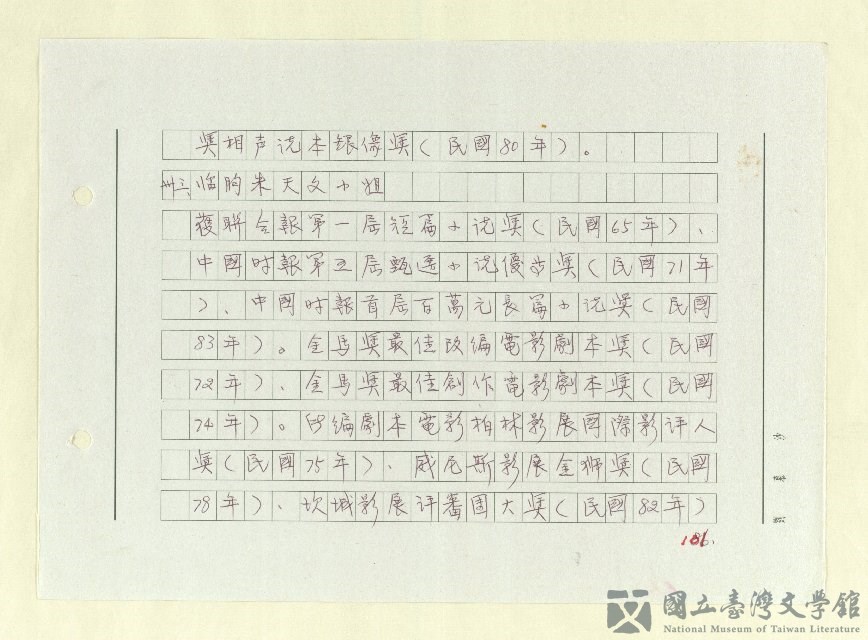 奖相声说本银像奖(民國80年)。
卅三、临朐朱天文小姐
獲聯合報第一屆短篇小说奖(民國65年)、
中國时報第五屆甄选小说優等奖(民國71年
)、中國时報首屆百萬元長篇小说奖(民國
83年)。金馬奖最佳改编電影劇本奖(民國
72年)、金馬奖最佳創作電影劇本奖(民國
74年)。所编劇本電影柏林影展國際影评人
奖(民國75年)、威尼斯影展金狮奖(民國
78年)、坎城影展评審團大奖(民國82年)
186.
國立臺灣文學館
National Museum of Taiwan Literature